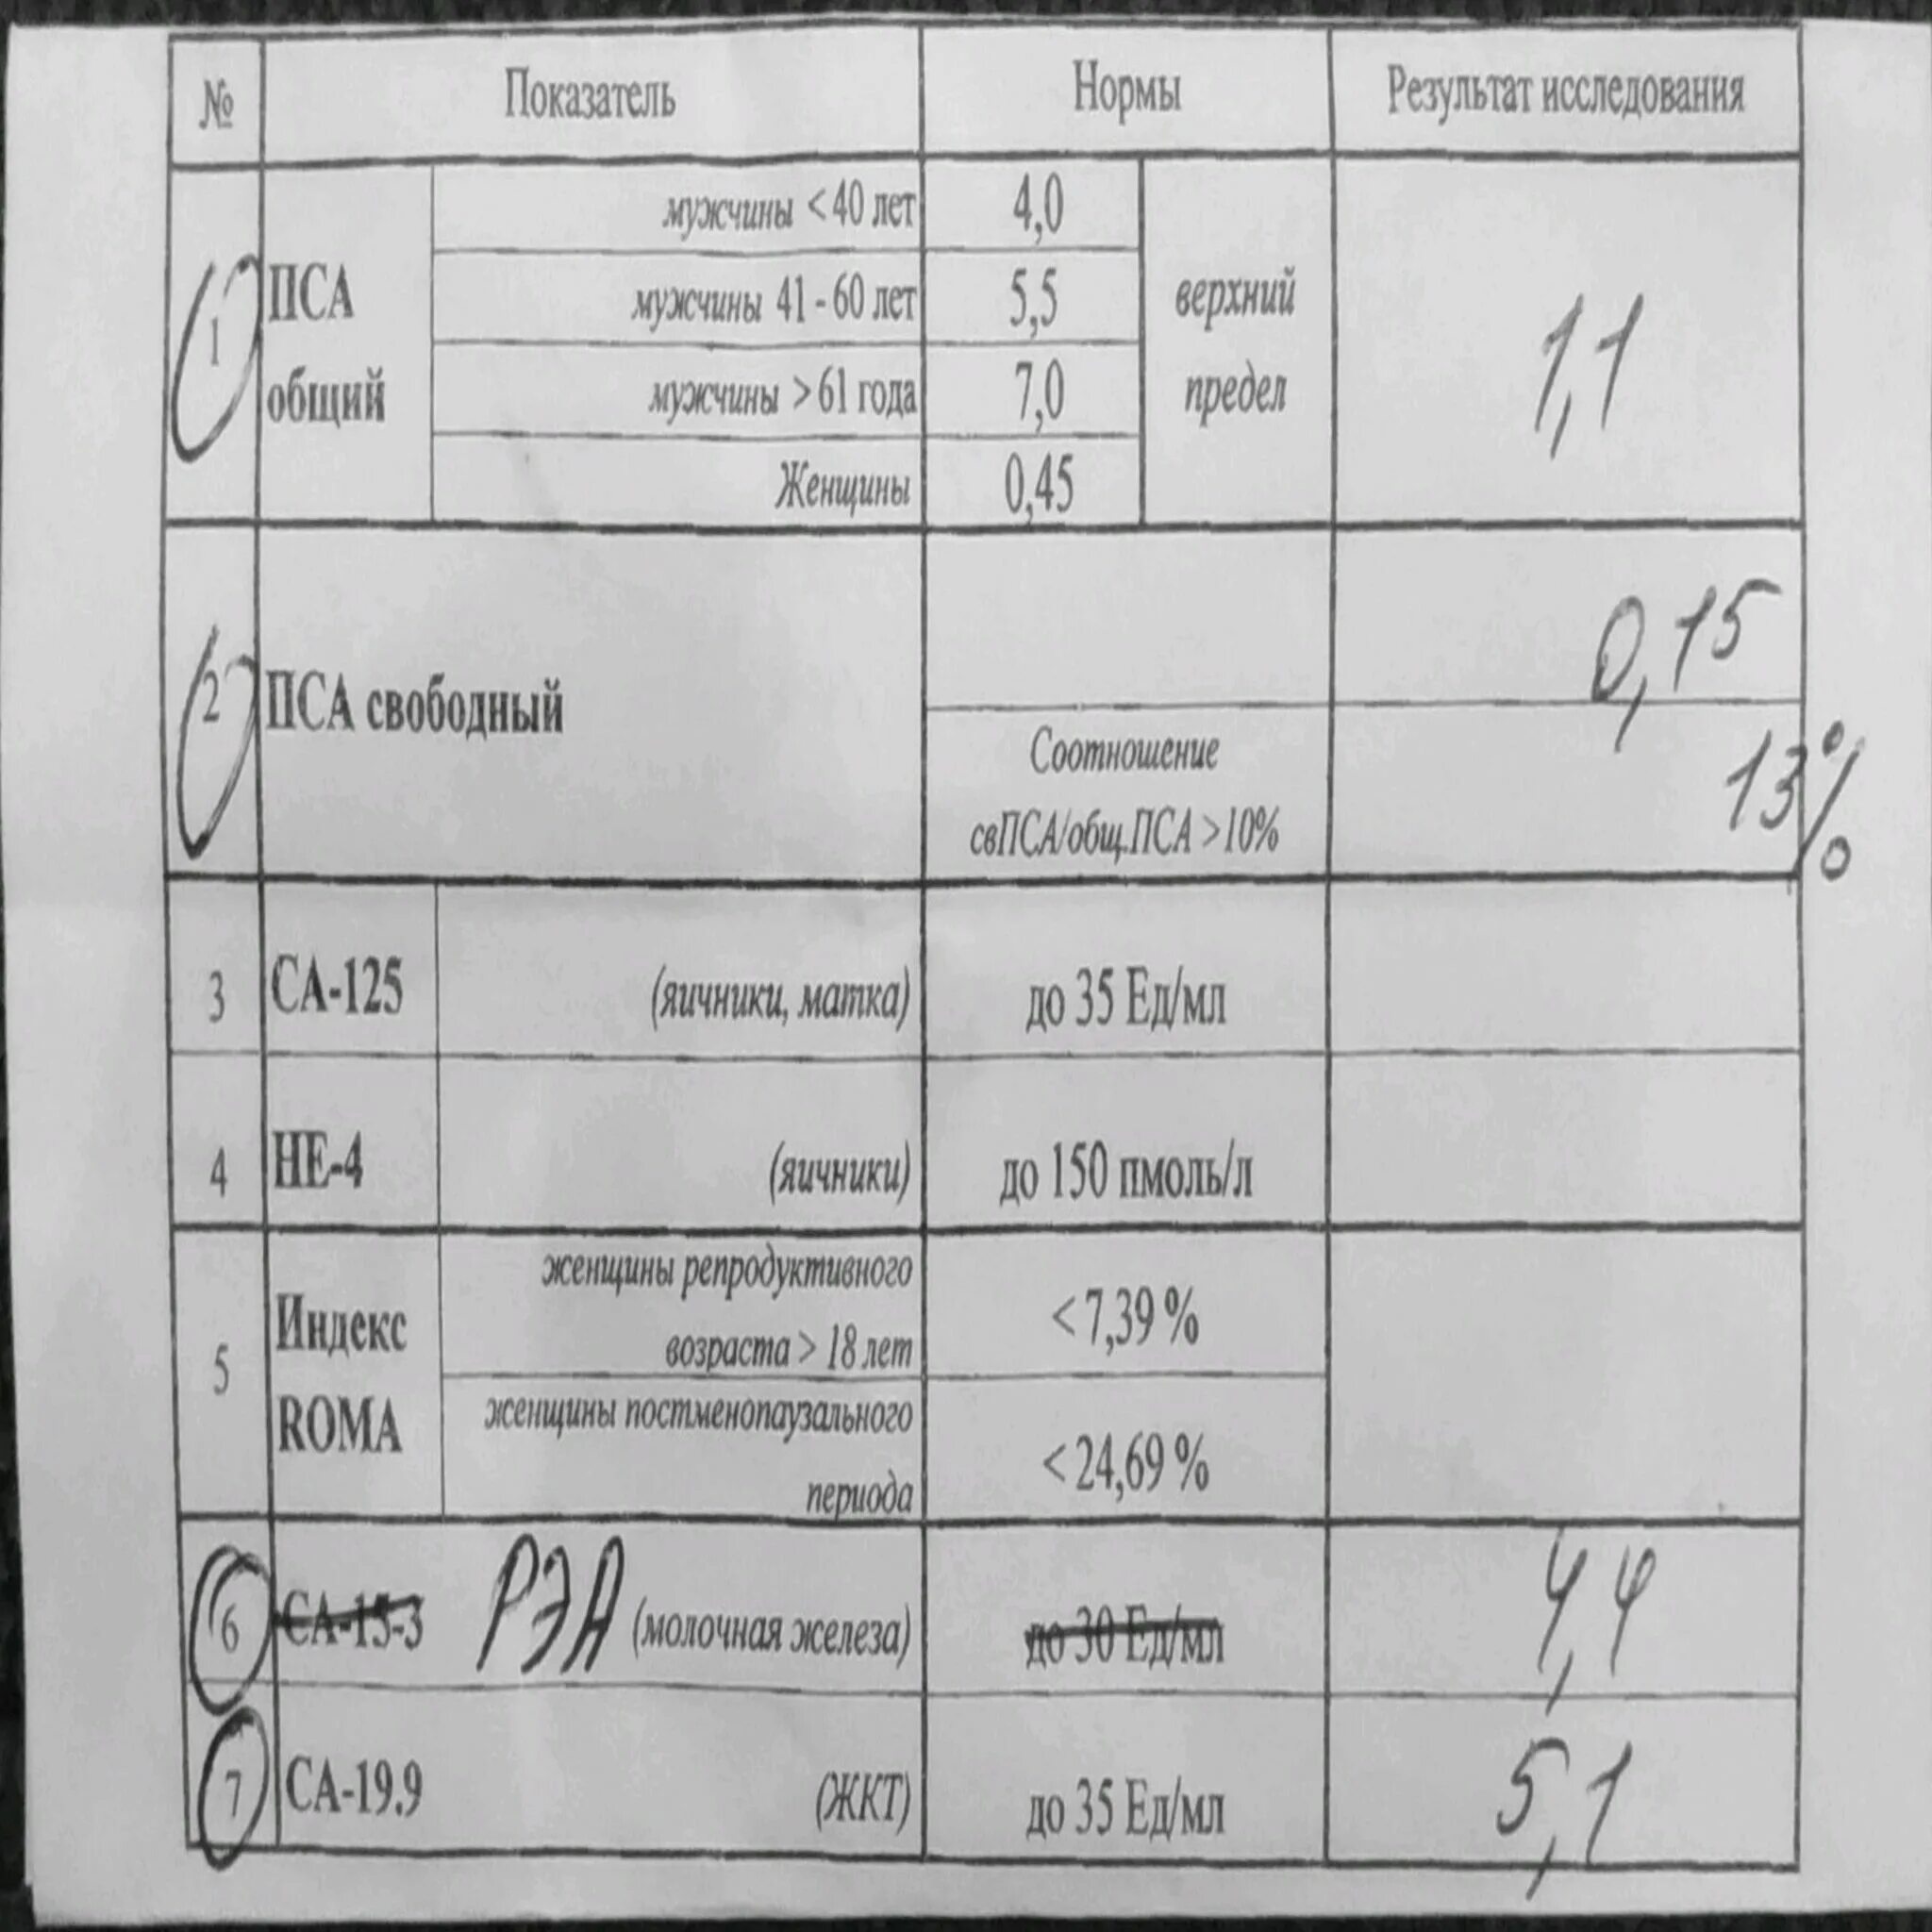 № Показатель Нормы Результат исследования
1 ПСА общий мужчины < 40 лет 4,0 верхний предел 1,1
мужчины 41 - 60 лет 5,5
мужчины > 61 года 7,0
Женщины 0,45
2 ПСА свободный 0,15
Соотношение
свПСА/общ.ПСА > 10% 13%
3 СА-125 (яичники, матка) до 35 Ед/мл
4 НЕ-4 (яичники) до 150 пмоль/л
5 Индекс ROMA женщины репродуктивного
возраста > 18 лет < 7,39 %
женщины постменопаузального
периода < 24,69 %
6 СА-15-3 РЭА (молочная железа) до 30 Ед/мл 4,4
7 СА-19.9 (ЖКТ) до 35 Ед/мл 5,1